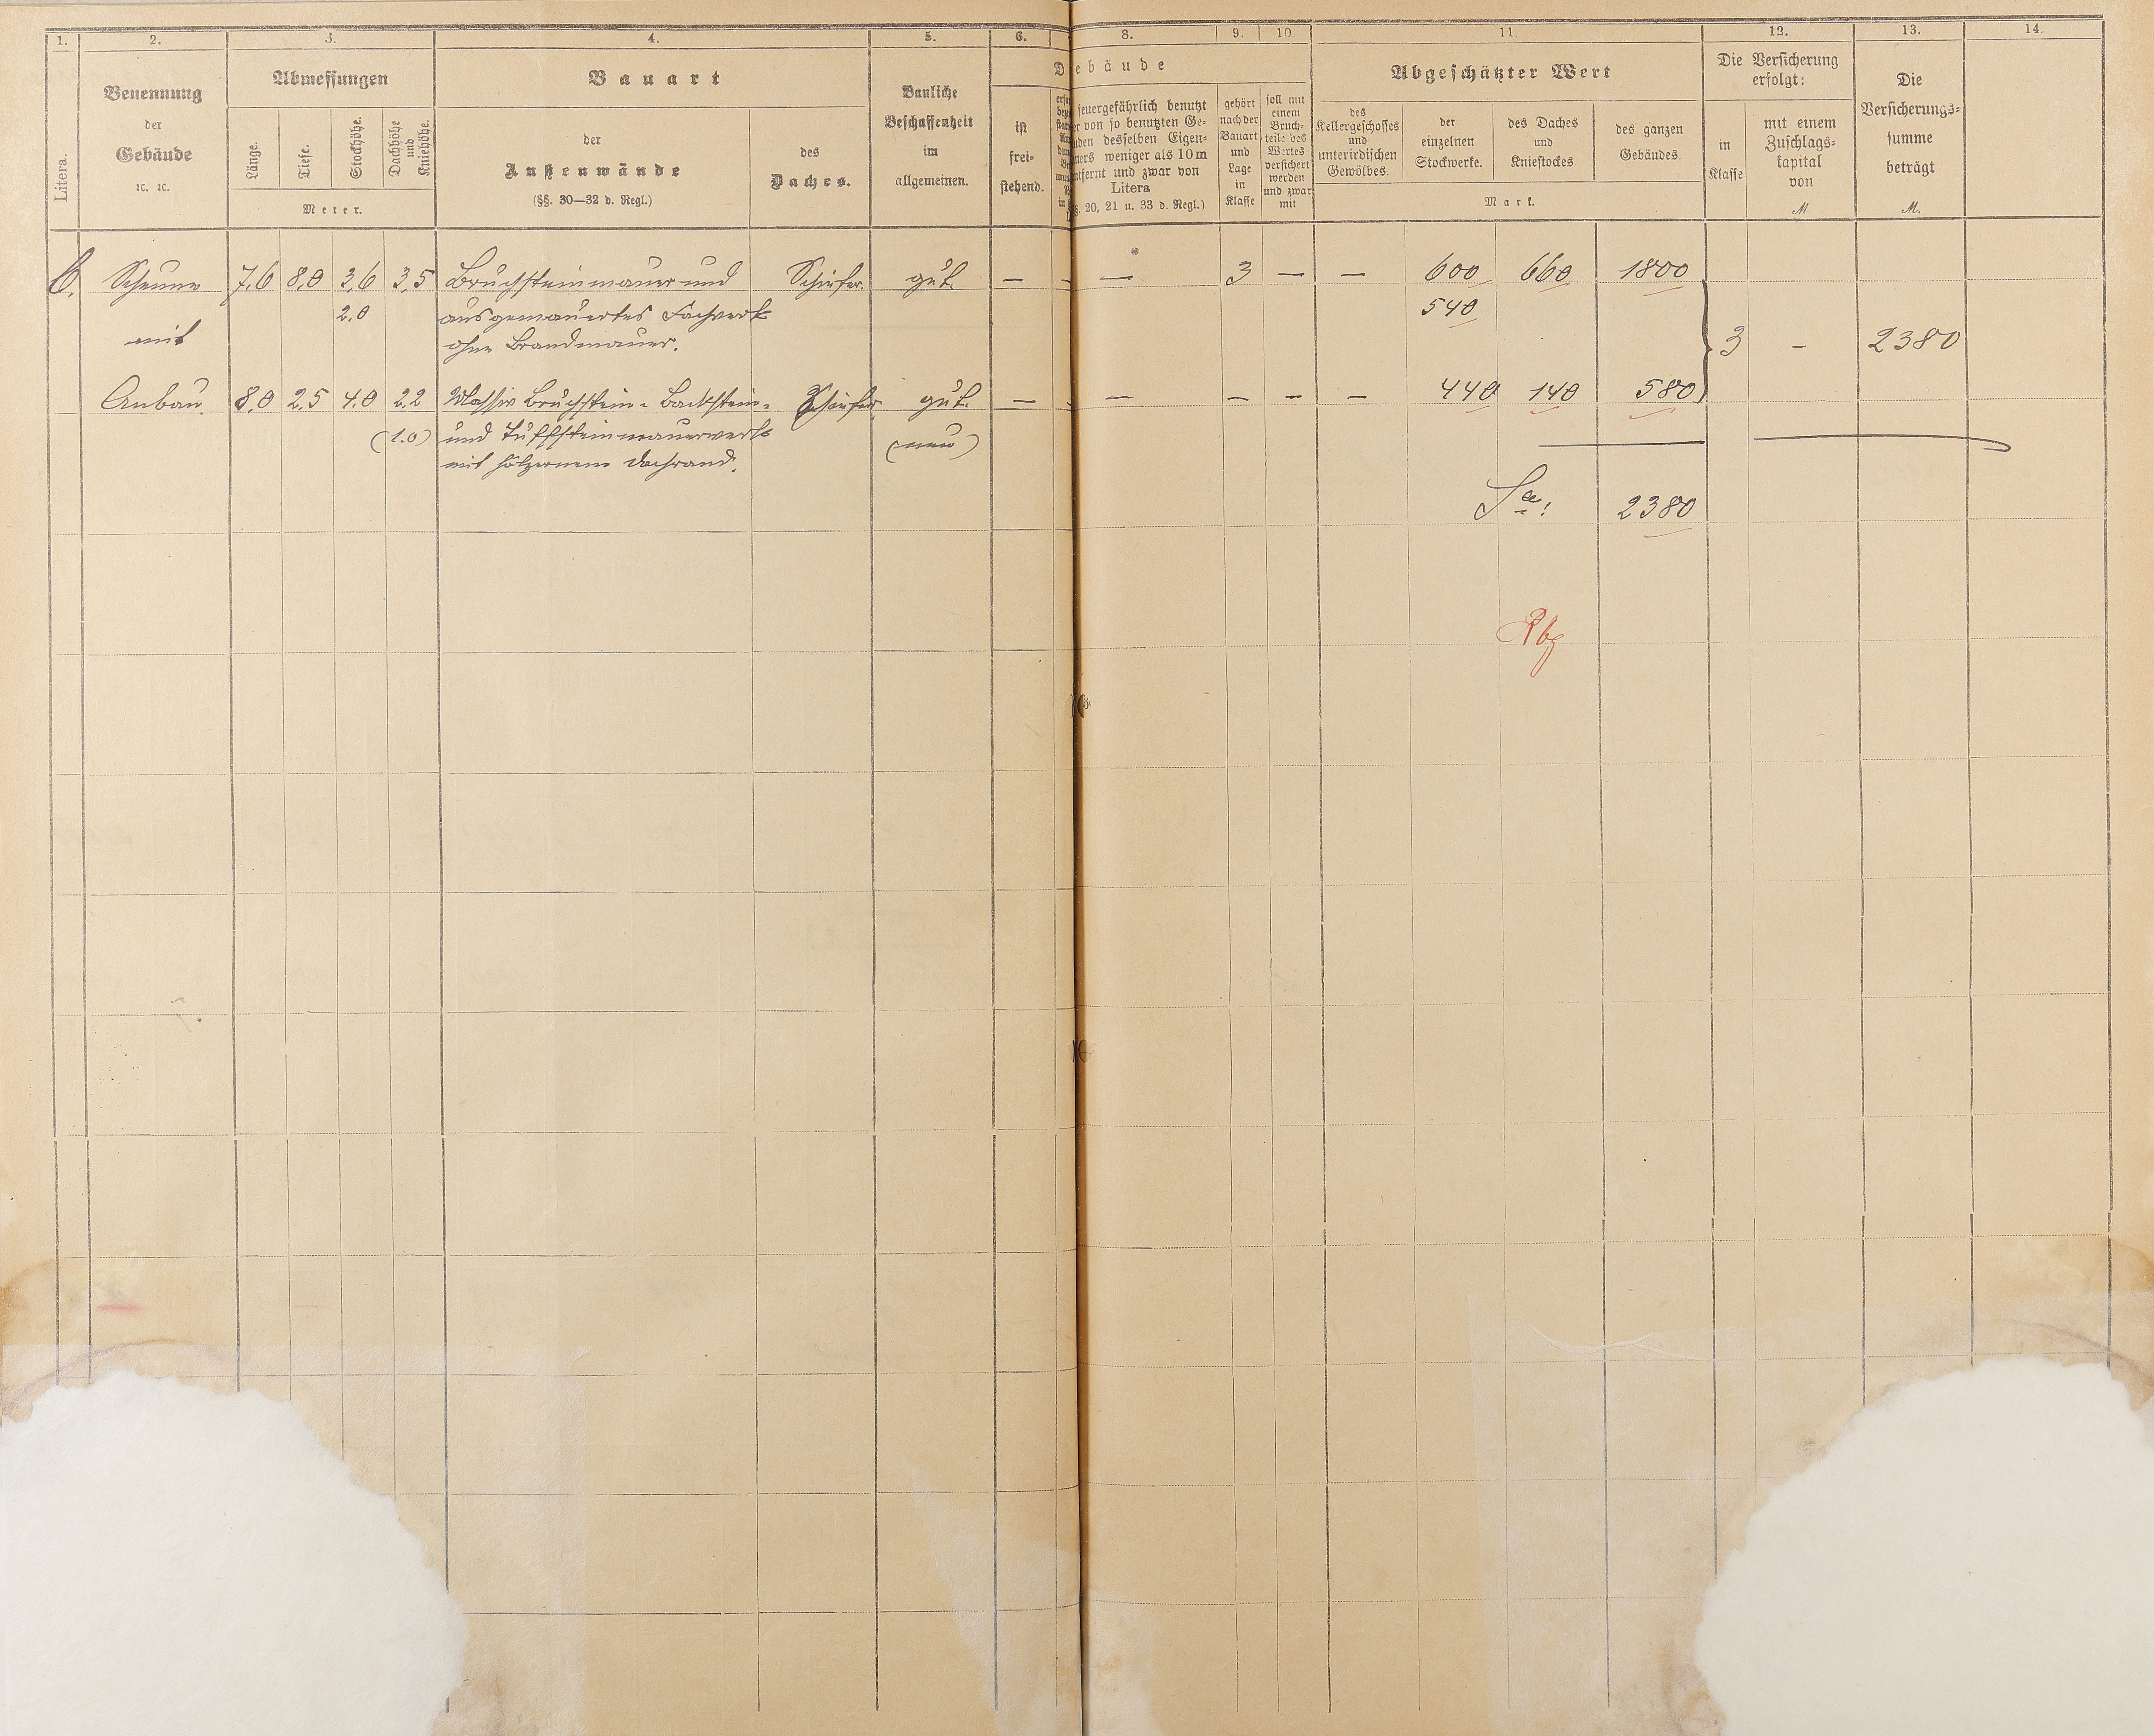 1. 2. 3. 4. 5. 6. 8. 9. 10 11 12. 13. 14.
Litera.
Benennung
der
Gebäude
ꝛc. ꝛc.
Abmessungen
Länge.
Tiefe.
Stockhöhe.
Dachhöhe
und
Kniehöhe.
Meter.
Bauart
der
Außenwände
(§§. 30—32 d. Regl.)
des
Daches.
Bauliche
Beschaffenheit
im
allgemeinen.
D
ist
frei-
stehend.
ebäude
feuergefährlich benutzt
er von so benutzten Ge-
uden desselben Eigen-
mers weniger als 10 m
ntfernt und zwar von
Litera
§. 20, 21 u. 33 d. Regl.)
gehört
nach der
Bauart
und
Lage
in
Klasse
soll mit
einem
Bruch-
teile des
Wertes
versichert
werden
und zwar
mit
Abgeschätzter Wert
des
Kellergeschosses
und
unterirdischen
Gewölbes.
der
einzelnen
Stockwerke.
des Daches
und
Kniestockes
des ganzen
Gebäudes.
Mark.
Die Versicherung
erfolgt:
in
Klasse
mit einem
Zuschlags-
kapital
von
M
Die
Versicherungs-
summe
beträgt
M.
Scheune 7,6 8,0 2,6 3,5 Bruchsteinmauer und Schiefer. gut. — — 3 — — 600 660 1800
2.0 ausgemauertes Fachwerk 540
mit ohne Brandmauer. 3 – 2380
Anbau. 8,0 2,5 4.0 2,2 Massiv Bruchstein- Backstein- Schiefer gut. — — — — — 440 140 580
(1.0) und Tuffsteinmauerwerk (neu)
mit hölzernem Dachrand.
Sa: 2380